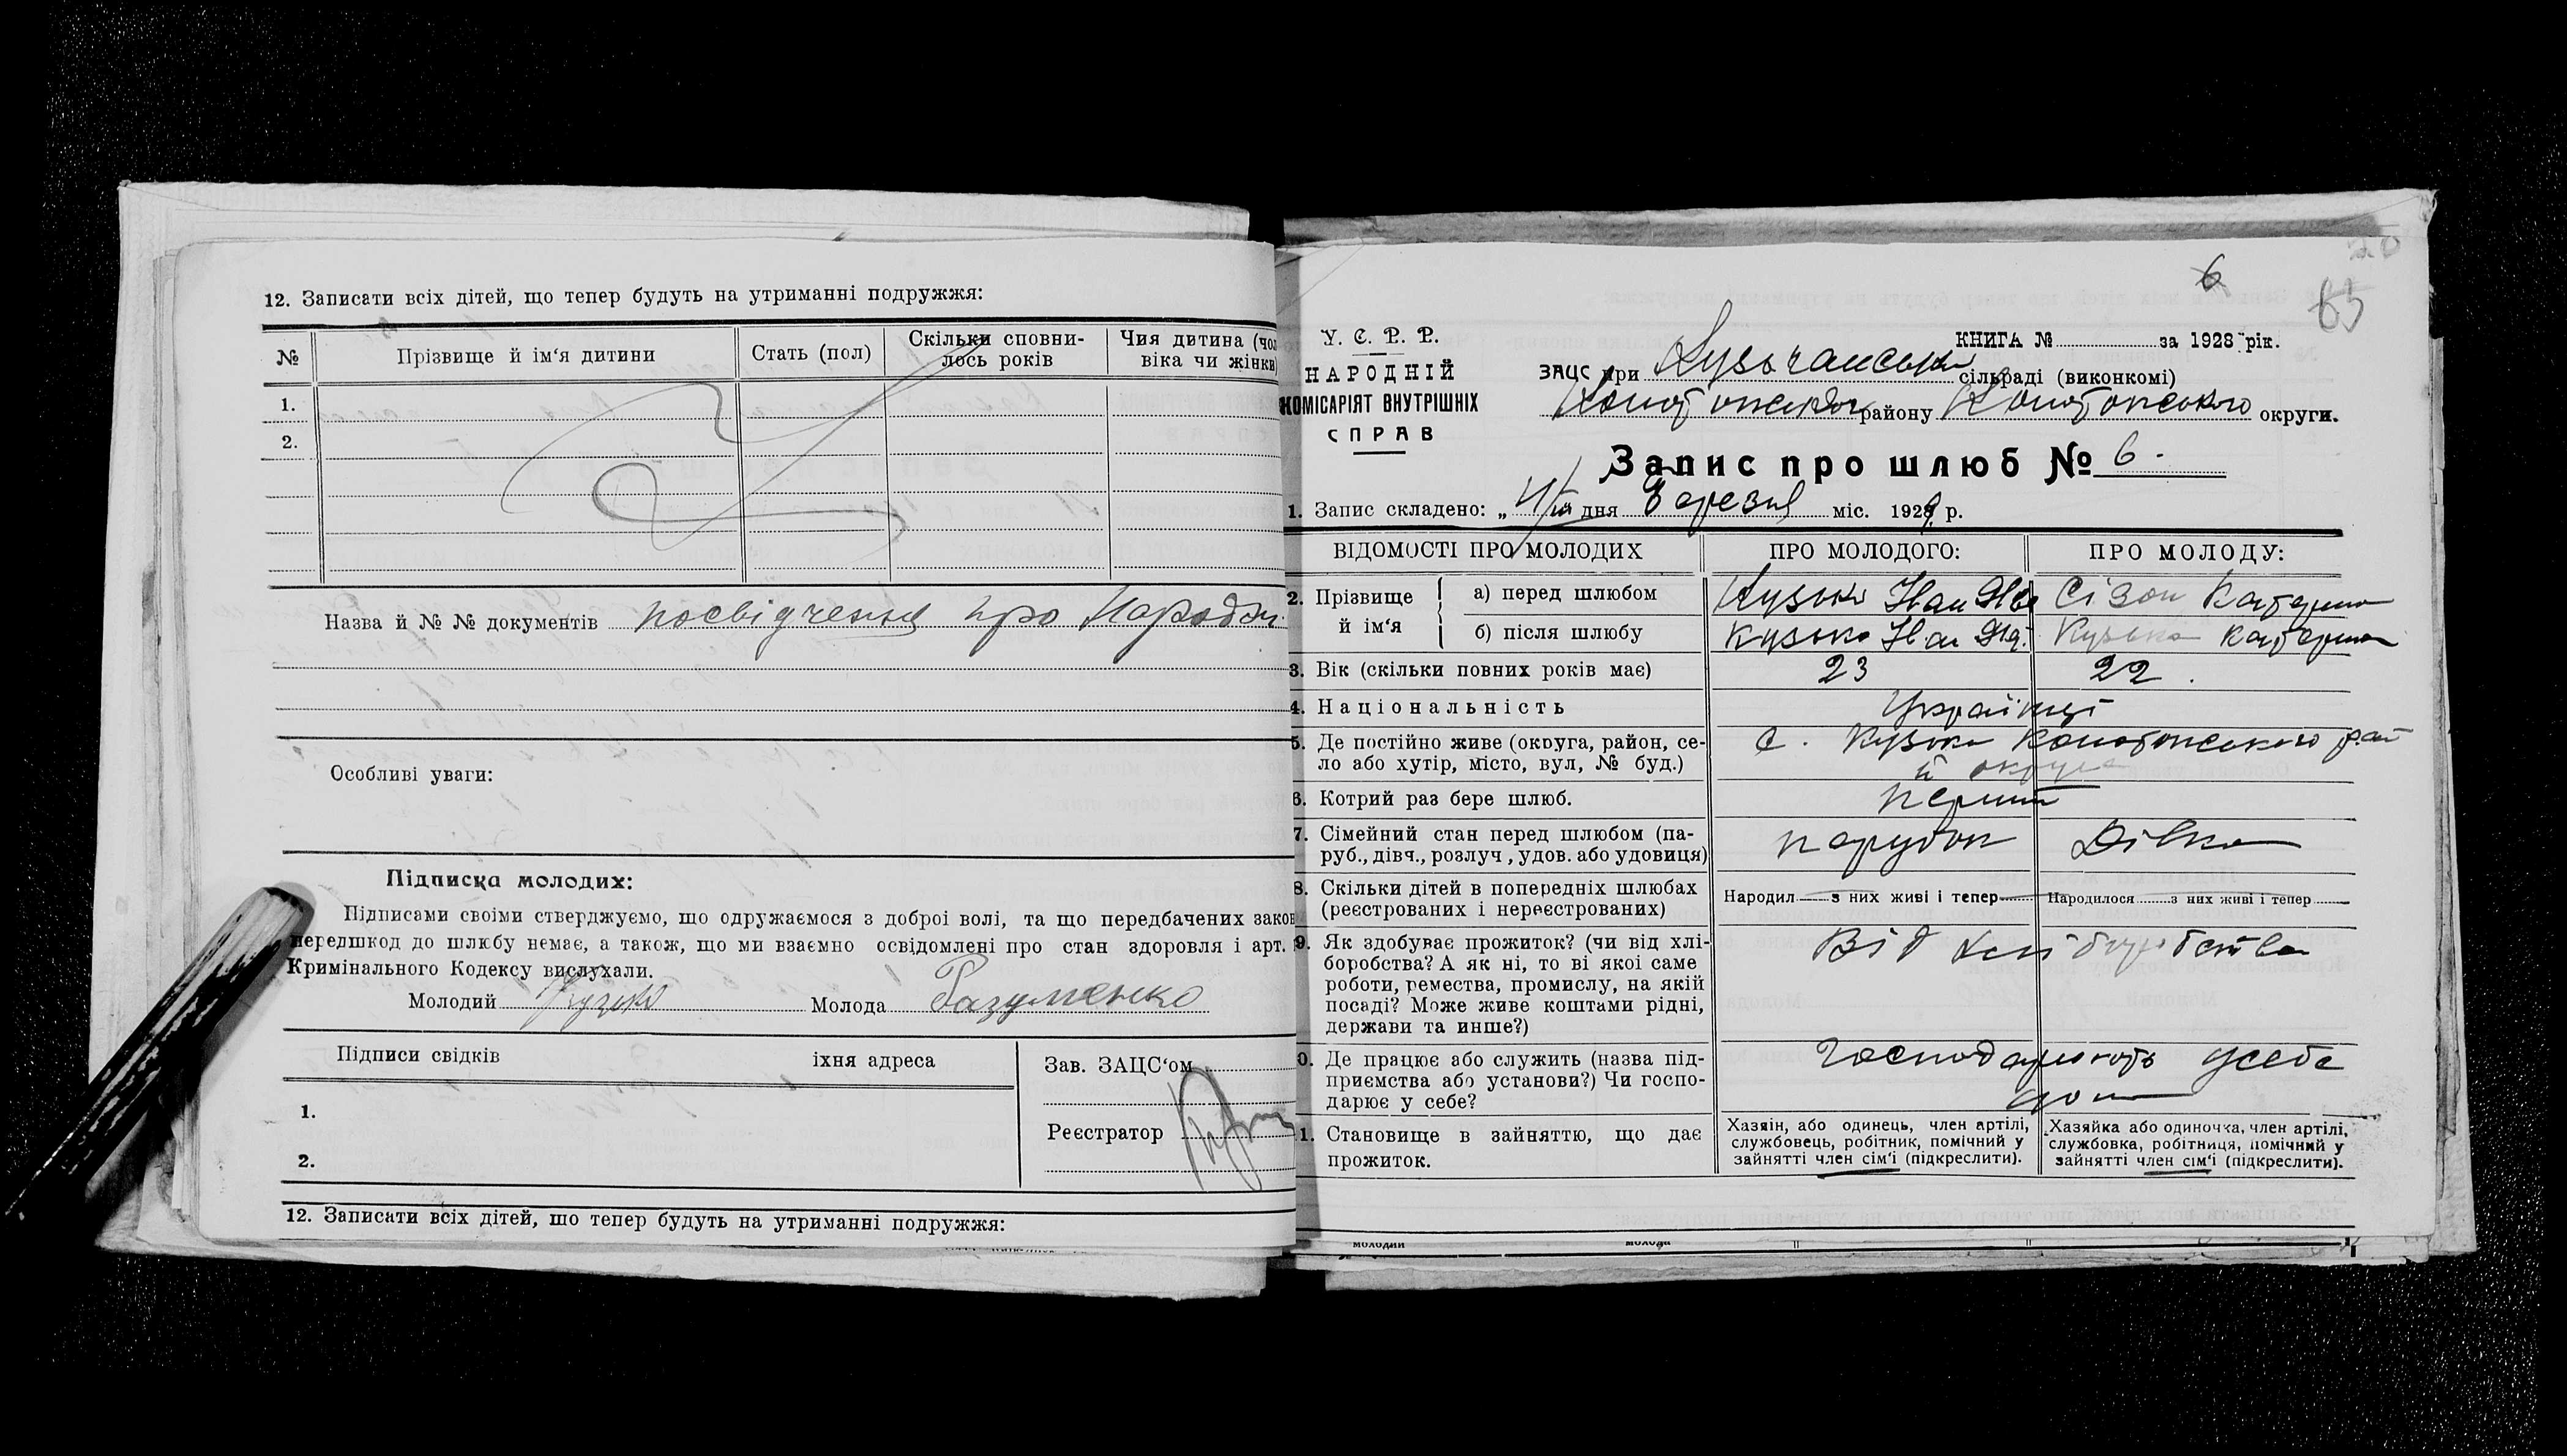 12. Записати всіх дітей, що тепер будуть на утриманні подружжя:
№ Прізвище й ім‘я дитини Стать (пол) Скільки сповни-
лось років Чия дитина (чол
віка чи жінки)
1.
2.
Назва й № № документів посвідчення про Народжн
Особливі уваги:
Підписка молодих:
Підписами своїми стверджуємо, що одружаємося з доброї волі, та що передбачених закон
перешкод до шлюбу немає, а також, що ми взаємно освідомлені про стан здоровля і арт.
Кримінального Кодексу вислухали.
Молодий Кузько Молода Разуменко
Підписи свідків їхня адреса
Зав. ЗАЦС‘ом
1.
Реєстратор
2.
12. Записати всіх дітей, шо тепер будуть на утриманні подружжя:
6
63
У. С. Р. Р.
НАРОДНІЙ
КОМІСАРІЯТ ВНУТРІШНІХ
СПРАВ
КНИГА № за 1928 рік.
ЗАЦС при сільраді (виконкомі)
району Конотопського округи.
Запис про шлюб № 6.
1. Запис складено: „ дня Березня міс. 1929 р.
ВІДОМОСТІ ПРО МОЛОДИХ ПРО МОЛОДОГО: ПРО МОЛОДУ:
2. Прізвище й ім‘я
а) перед шлюбом Кузько Іван Сізон Катерина
б) після шлюбу Кузько Іван Кузько Катерина
3. Вік (скільки повних років має) 23 22.
4. Національність Українці
5. Де постійно живе (округа, район, се-
ло або хутір, місто, вул, № буд.) с. Кузьки Конотопського рай
й округи
6. Котрий раз бере шлюб. перший
7. Сімейний стан перед шлюбом (па-
руб., дівч., розлуч, удов. або удовиця) парубок Дівка
8. Скільки дітей в попередніх шлюбах
(реєстрованих і нереєстрованих)
Народил з них живі і тепер Народилося з них живі і тепер
9. Як здобуває прожиток? (чи від хлі-
боробства? А як ні, то ві якої саме
роботи, ремества, промислу, на якій
посаді? Може живе коштами рідні,
держави та инше?)
Від хліборобства
0. Де працює або служить (назва під-
приємства або установи?) Чи госпо-
дарює у себе?
Господарюють усебе
дома
1. Становище в зайняттю, що дає
прожиток.
Хазяїн, або одинець, член артілі,
службовець, робітник, помічний у
зайнятті член сім‘ї (підкреслити).
Хазяйка або одиночка, член артілі,
службовка, робітниця, помічний у
зайнятті член сім‘ї (підкреслити).
молодий молода